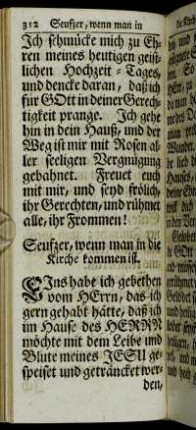 312 Seufzer, wenn man in
Ich schmücke mich zu Eh-
ren meines heutigen geist-
lichen Hochzeit-Tages,
und dencke daran, daß ich
für GOtt in deiner Gerech-
tigkeit prange. Ich gehe
hin in dein Hauß, und der
Weg ist mir mit Rosen al-
ler seeligen Vergnügung
gebahnet. Freuet euch
mit mir, und seyd frölich,
ihr Gerechten, und rühmet
alle, ihr Frommen!
Seufzer, wenn man in die
Kirche kommen ist.
EIns habe ich gebethen
vom HErrn, das ich
gern gehabt hätte, daß ich
im Hause des HERRN
möchte mit dem Leibe und
Blute meines JESU ge-
speiset und geträncket wer-
den,